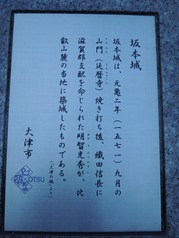 坂本城
坂本城は、元亀二年（一五七一）九月の
山門（延暦寺）焼き打ち後、織田信長に
滋賀郡支配を命じられた明智光秀が、比
叡山麓の当地に築城したものである。
（「大津の城」より）
大津市
OTSU